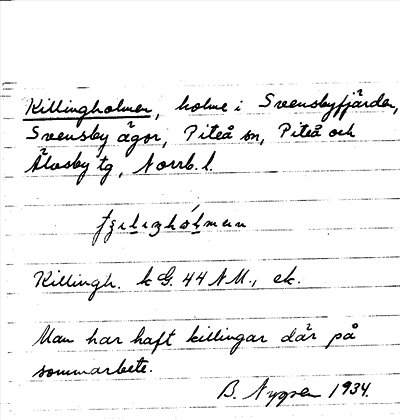 Killingholmen, holme i Svensbyfjärden,
Svensby ägor, Piteå sn, Piteå och
Älvsby tg, Norrb. l.
Killingh. k G. 44 NM., ek.
Man har haft killingar där på
sommarbete.
B. Nygren 1934.